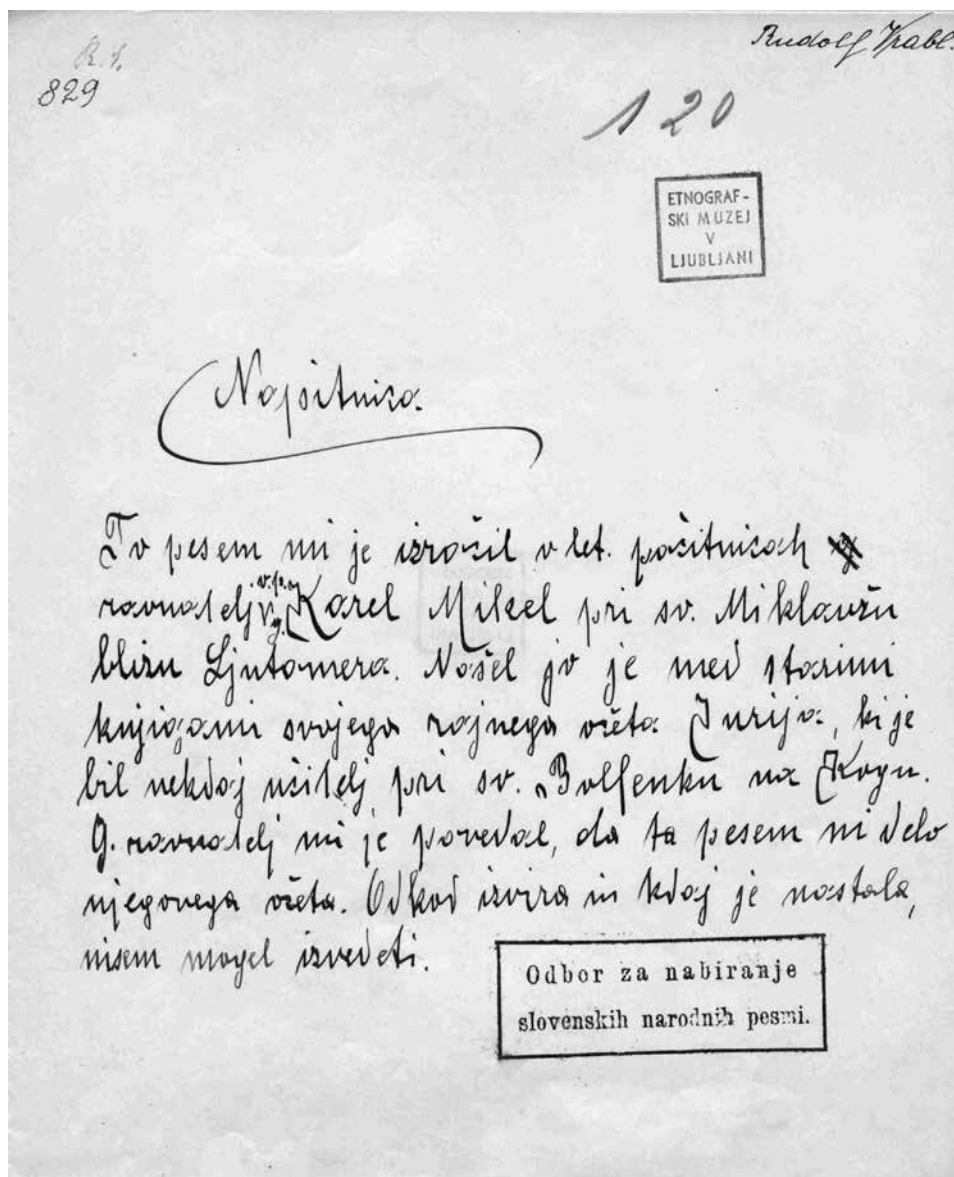 R. S.
829
Rudolf Vrabl.
120
ETNOGRAF-
SKI MUZEJ
V
LJUBLJANI
Napitnica.
To pesem mi je izročil v let. počitnicah
ravnatelj v. p. g. Karel Mikel pri sv. Miklavžu
blizu Ljutomera. Našel jo je med starimi
knjigami svojega rajnega očeta Jurija, ki je
bil nekdaj učitelj pri sv. Bolfenku na Kogu.
G. ravnatelj mi je povedal, da ta pesem ni delo
njegovega očeta. Odkod izvira in kdaj je nastala,
nisem mogel izvedeti.
Odbor za nabiranje
slovenskih narodnih pesmi.